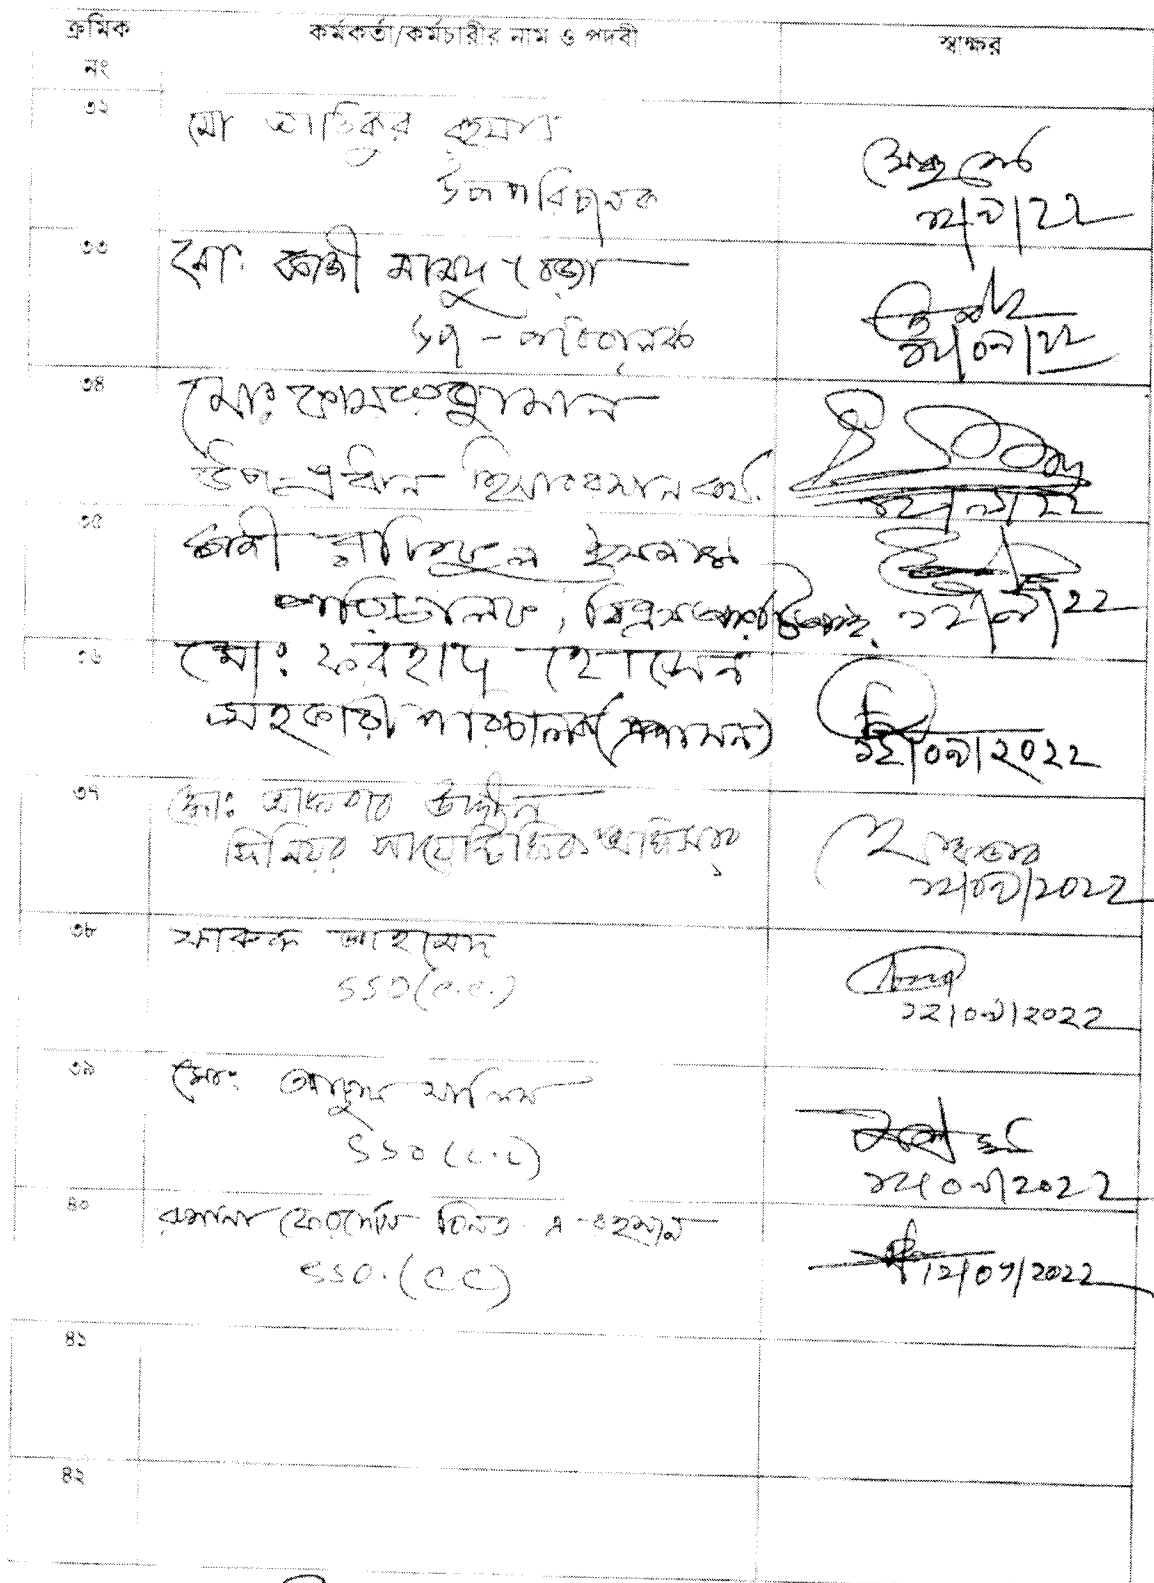 ক্রমিক নং কর্মকর্তা/কর্মচারীর নাম ও পদবী স্বাক্ষর
৩২ মো আতিকুর
উপপরিচালক
১২/০৯/22
৩৩ মো: কাজী মামুদ রেজা
উপ-পরিচালক
১২/০৯/২২
৩৪ মোঃ কামরুজ্জামান
উপ-প্রধান হিসাবরক্ষণ কর্ম.
১২/০৯/২২
৩৫ কাজী রাকিবুল ইসলাম
পরিচালক,
১২/০৯/২২
৩৬ মো: ফরহাদ হোসেন
সহকারী পরিচালক (প্রশাসন)
১২/০৯/২০২২
৩৭ মো: আকবার উদ্দীন
সিনিয়র সায়েন্টিফিক অফিসার
১২/০৯/২০২২
৩৮ ফারুক আহমেদ
SSO (C.C.)
১২/০৯/২০২২
৩৯ মো: আব্দুল
SSO (C.C)
১২/০৯/২০২২
৪০
SSO. (CC)
12/09/2022
৪১
৪২